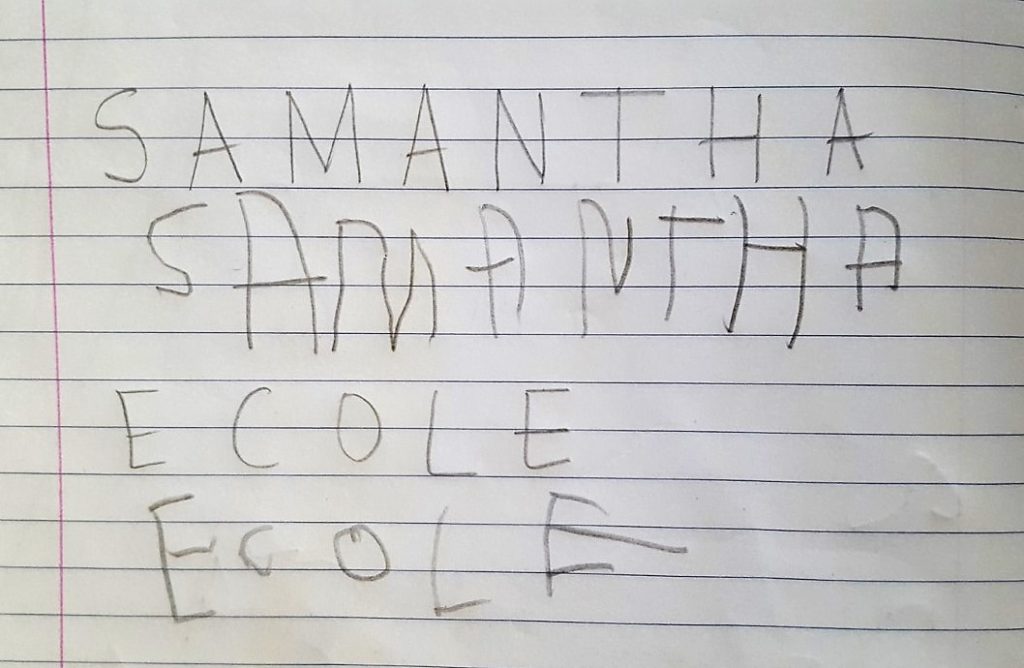 SAMANTHA
SAMANTHA
ECOLE
ECOLE